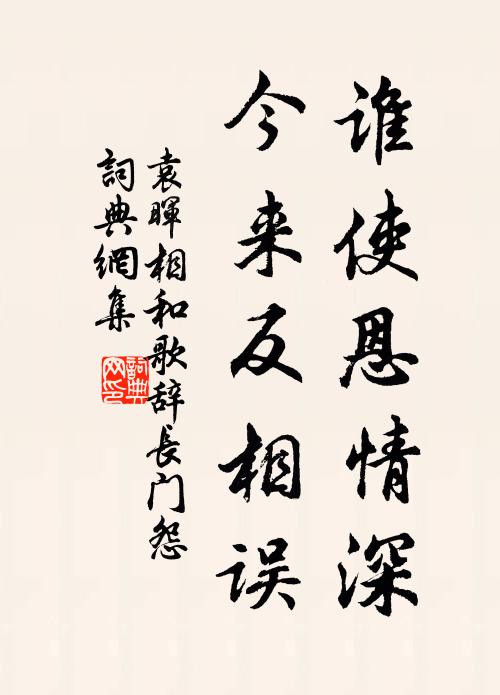 谁使恩情深
今来反相误
袁暉相和歌辞長门怨
詞典網集
詞典网印